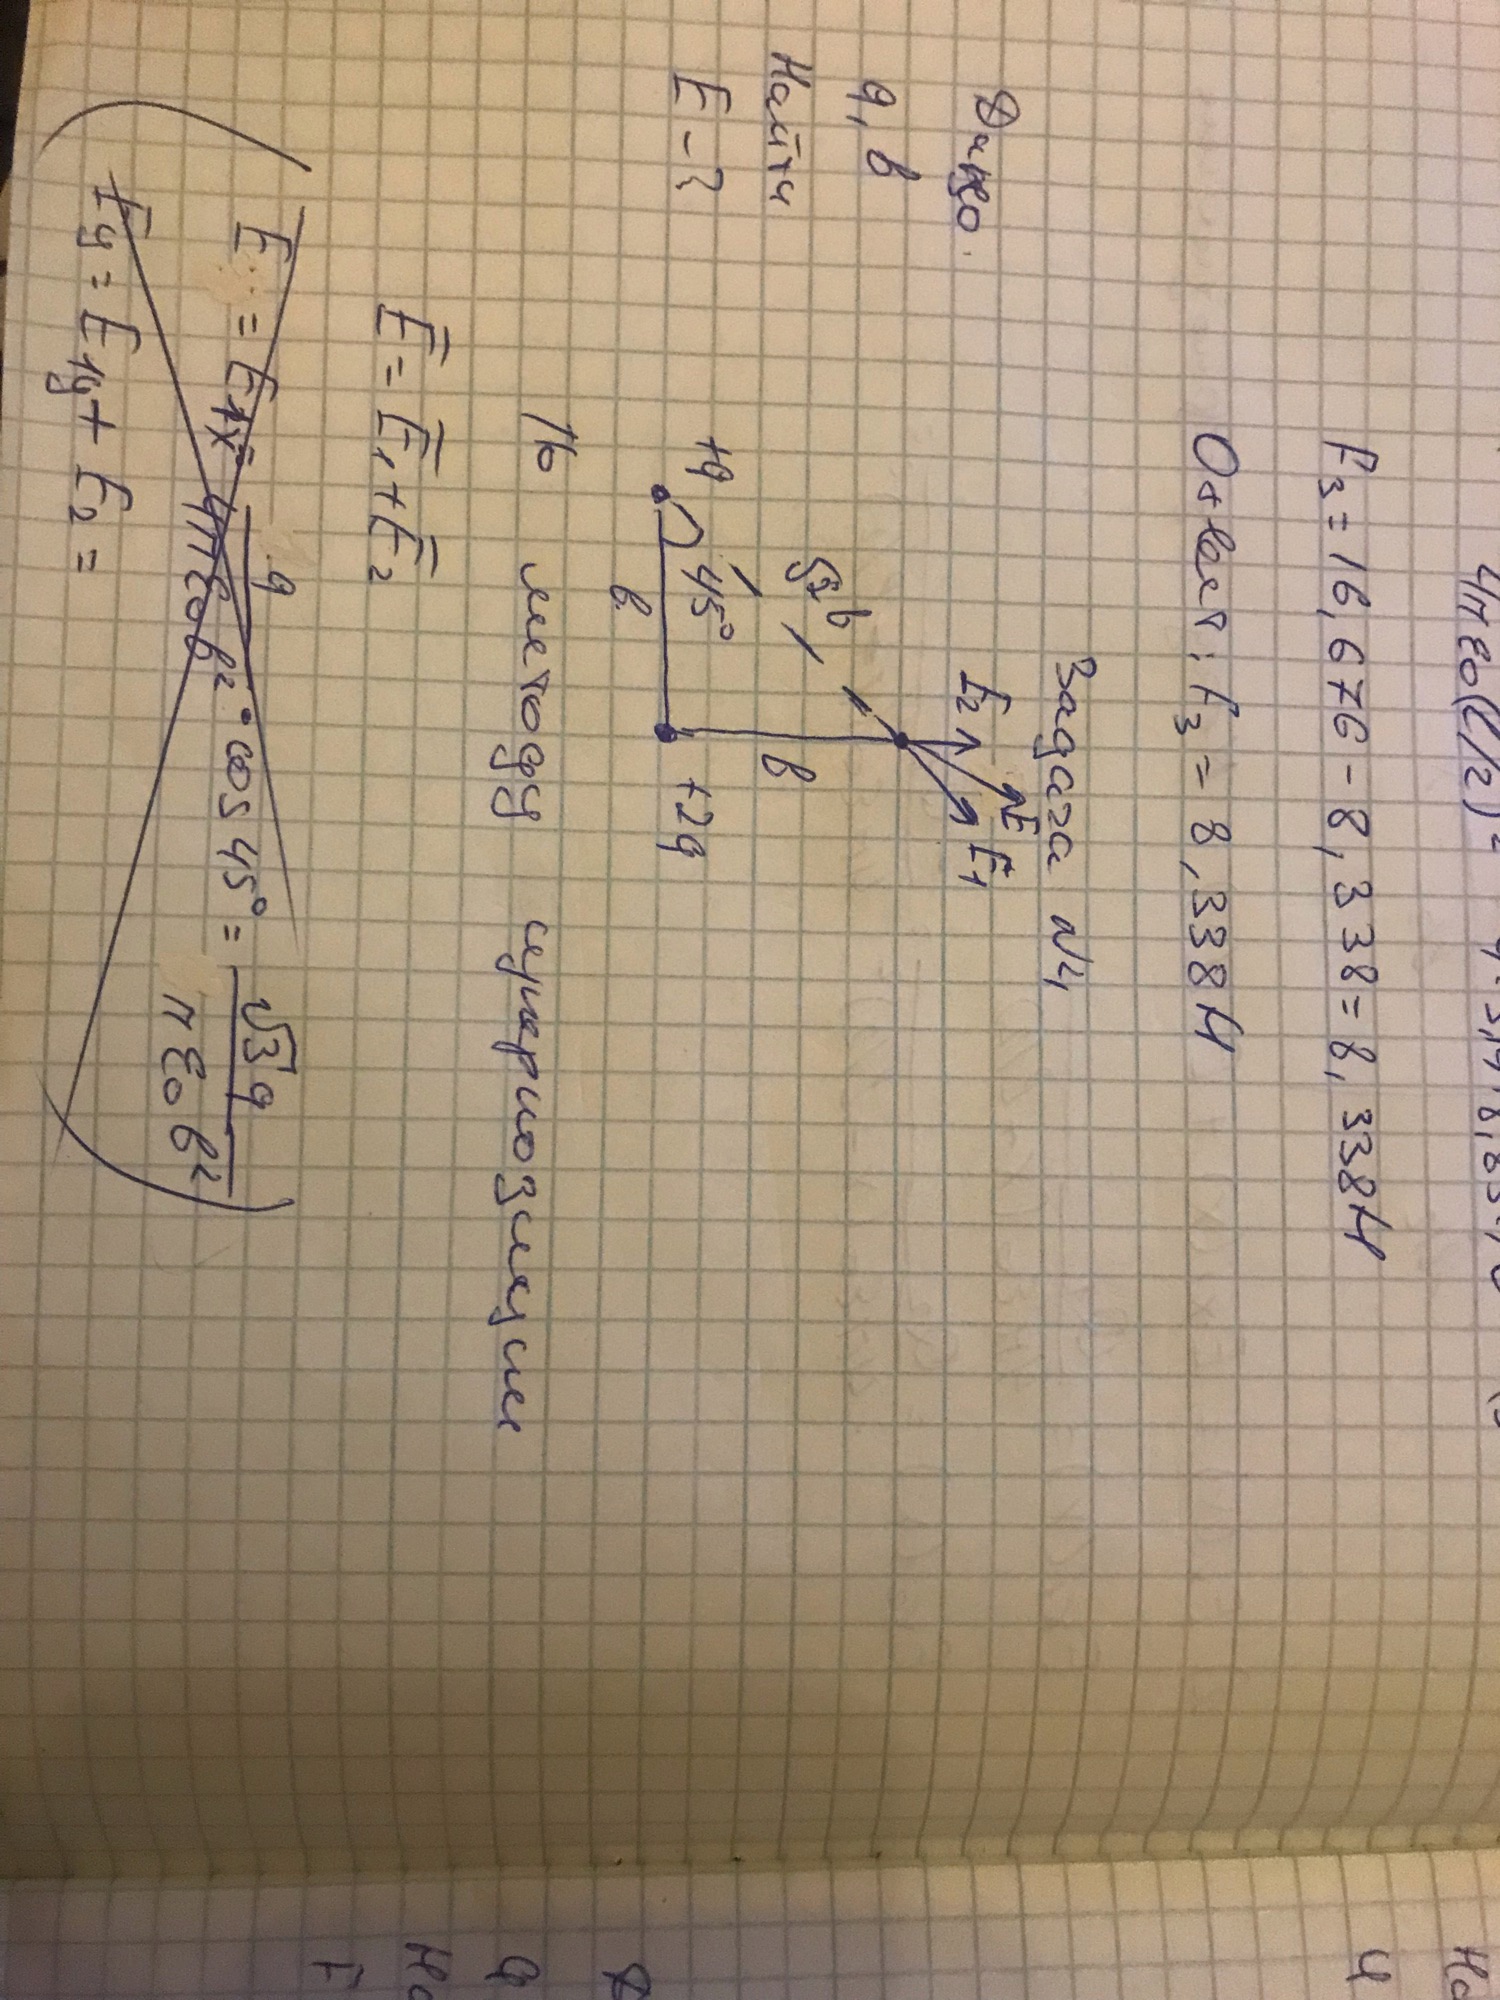 4πε₀(l/2)²
F₃ = 16,676 - 8,338 = 8,338 Н
Ответ: F₃ = 8,338 Н
Задача №4
Дано
q, b
Найти
E - ?
E₂ E E₁
√2 b
b
+q 45° +2q
b
По методу суперпозиции
E̅ = E̅₁ + E̅₂
E = E₁ₓ = q / 4πε₀b² · cos 45° = √3 q / πε₀b²
Ey = E₁y + E₂ =
На
q
На
F